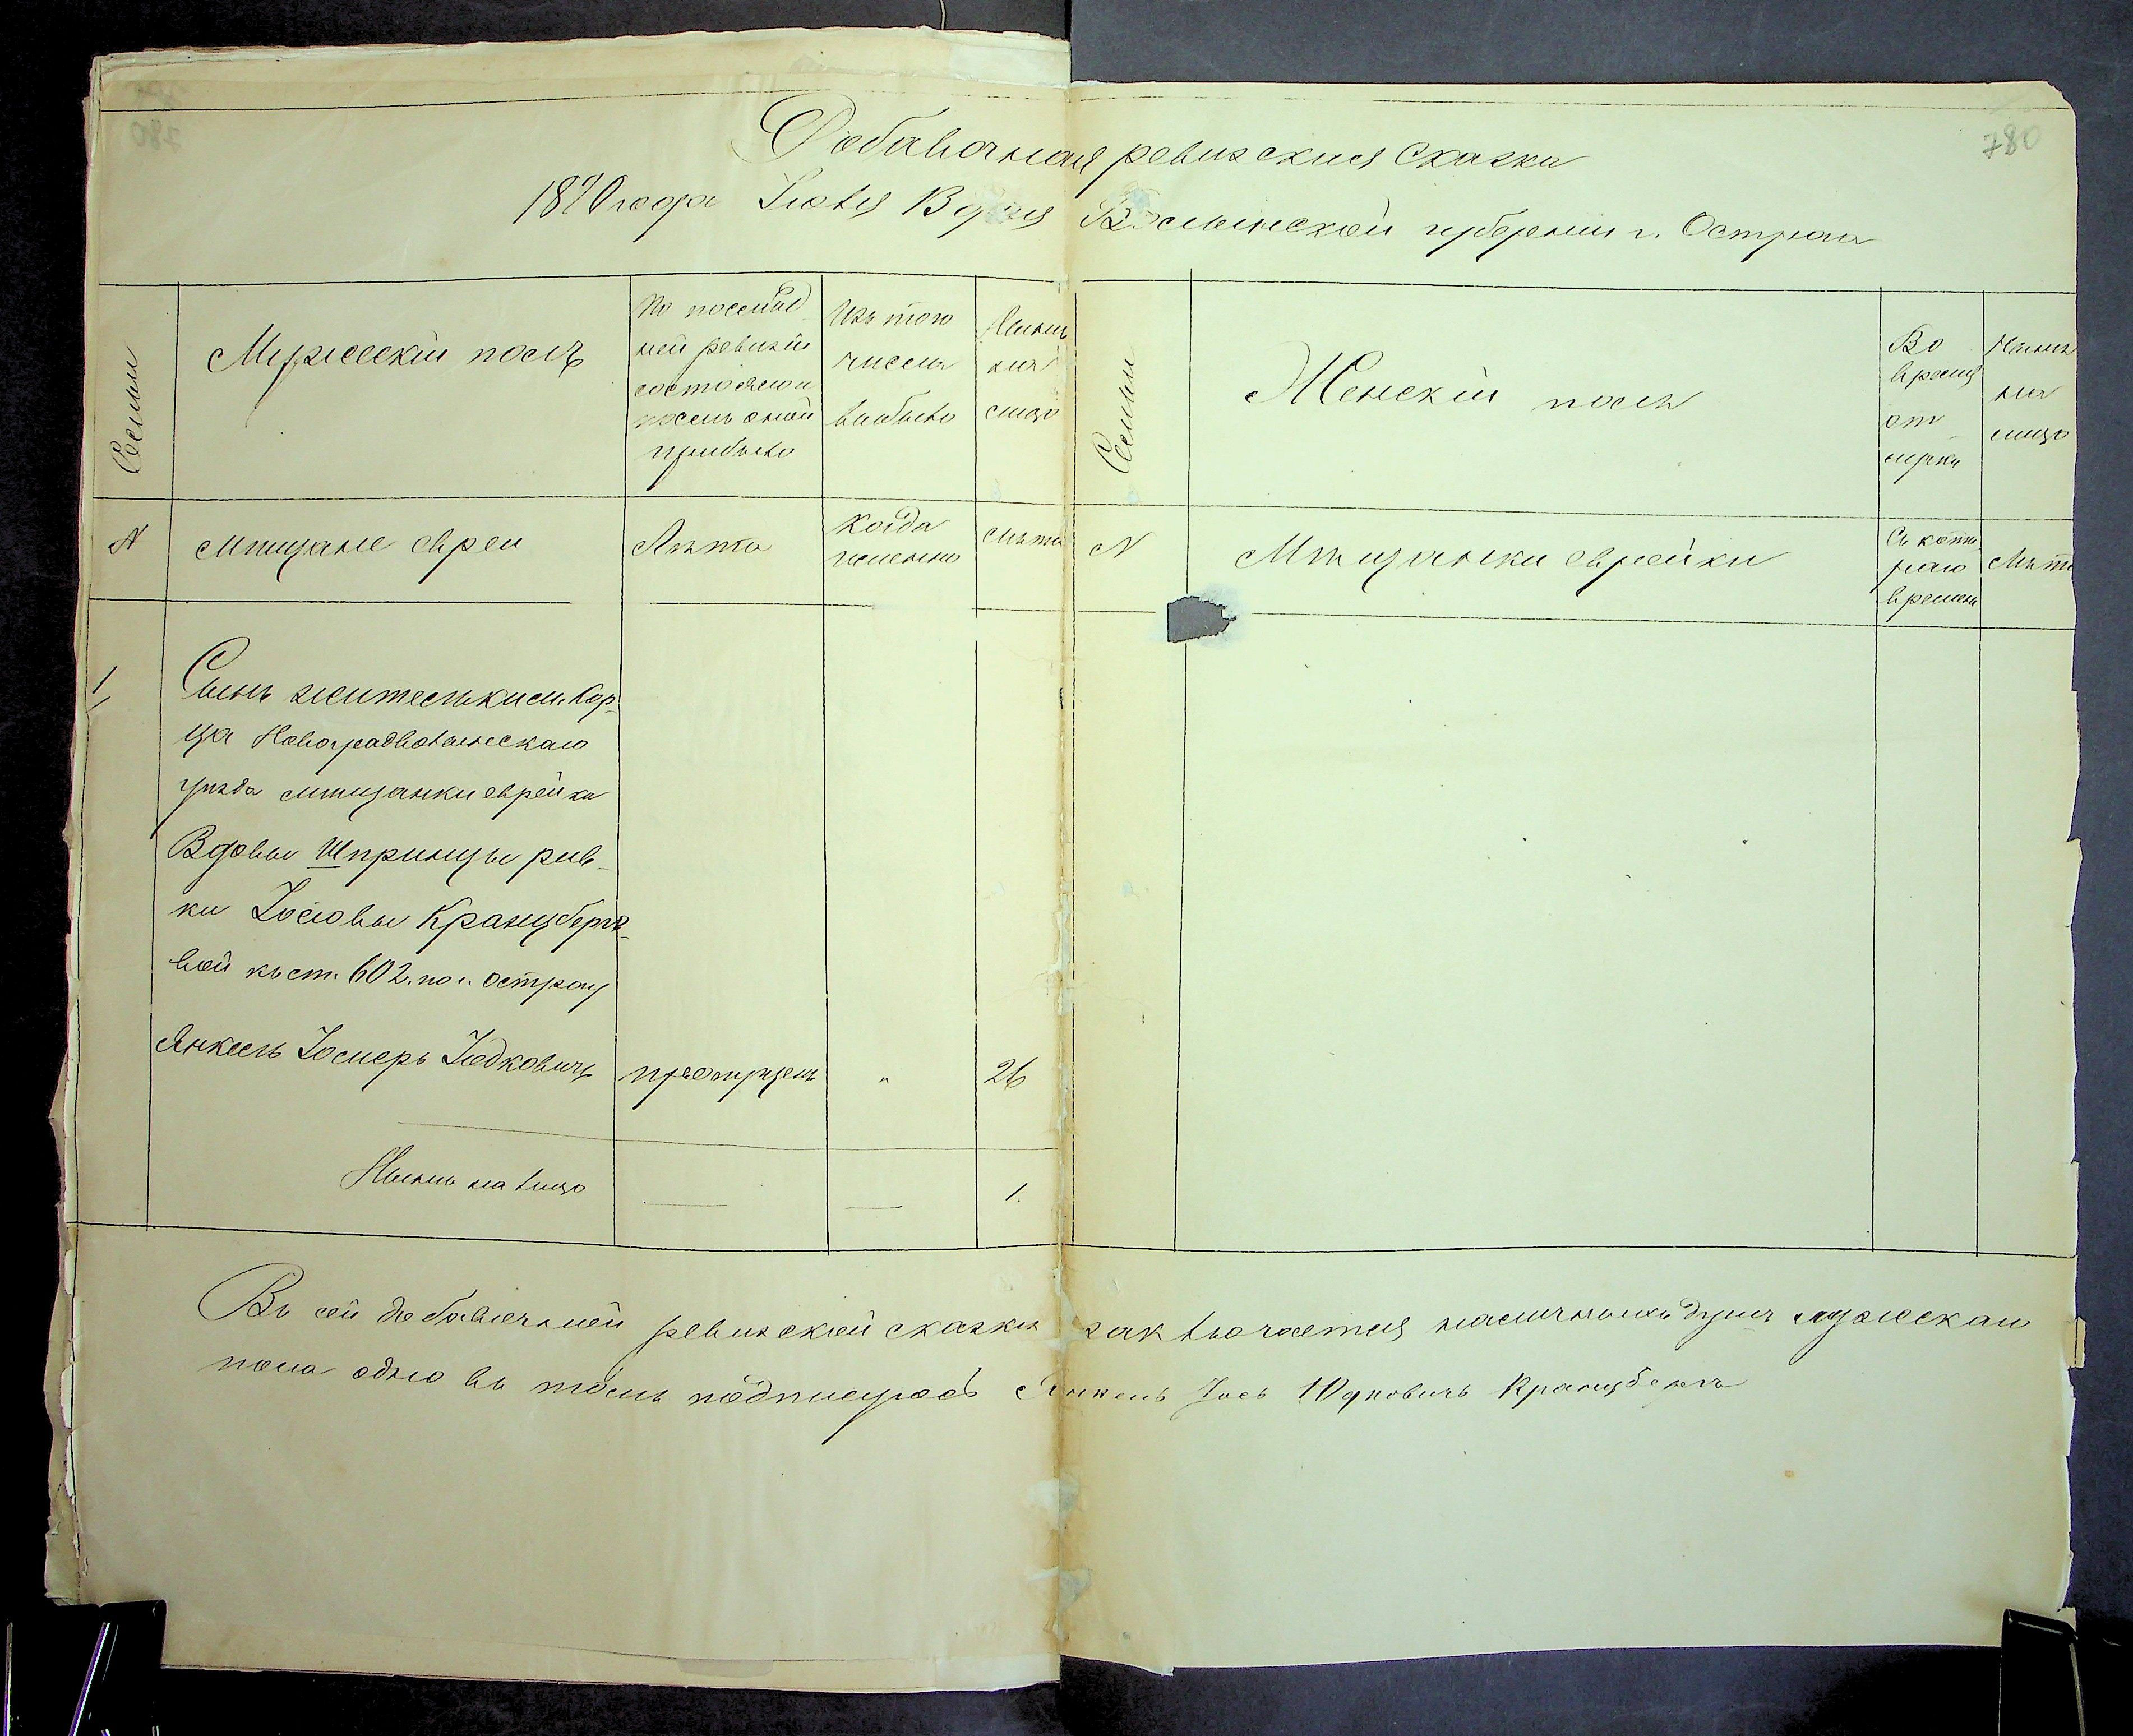 780
Добавочная ревизская сказка
1870 года Іюля 13 дня Волынской губерніи г. Острога
Семьи
Мужескій полъ
По послѣд
ней ревизіи
состояло и
послѣ оной
прибыло
Изъ того
числа
выбыло
Нынѣ
на
лицо
Семьи
Женскій полъ
Во
время
от
лучки
Нынѣ
на
лицо
N
Мѣщане евреи
Лѣта
Когда
именно
Лѣта
N
Мѣщанки еврейки
Съ кото
раго
времени
Лѣта
1
Сынъ жительки м. Кор
ца Новоградволынскаго
уѣзда мѣщанки еврейки
Вдовы Шпринцы рив-
ки Іосіовы Кранцберго-
вой къ ст. 602. по г. Острогу
Янкель Іосиеръ Юдковичъ
пропущенъ
"
26
Нынѣ на лицо
—
—
1.
Въ сей добавочной ревизской сказкѣ заключается наличныхъ душъ мужескаго
пола одно въ томъ подписуюсь Янкель Іось Юдковичъ Кранцбергъ